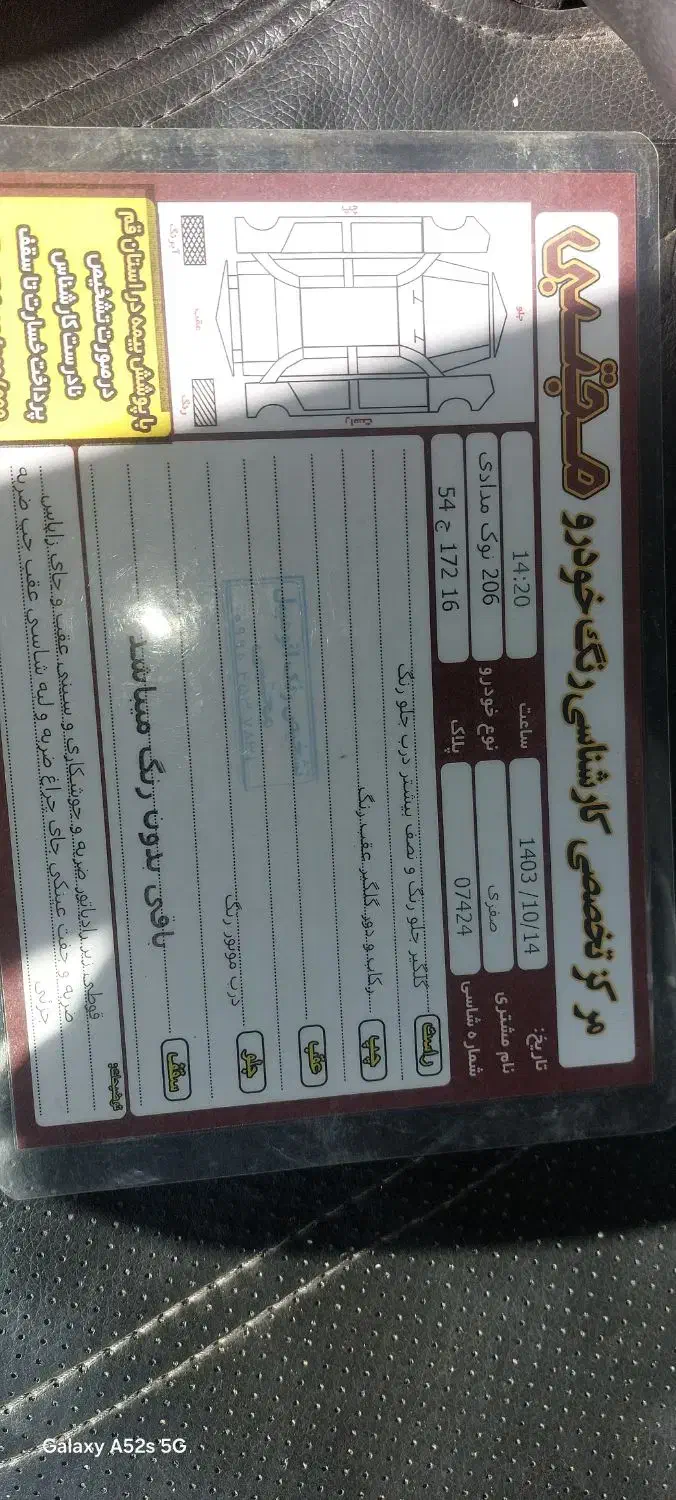 مرکز تخصصی کارشناسی رنگ خودرو مجتبی
تاریخ: 1403/10/14 ساعت 14:20
نام مشتری صفری نوع خودرو 206 نوک مدادی
شماره شاسی 07424 پلاک 54 ج 172 16
جلو
عقب
راست
رنگ
راست گلگیر جلو رنگ و نصف بیشتر درب جلو رنگ
چپ رکاب و دور گلگیر عقب رنگ
عقب
جلو درب موتور رنگ
سقف
باقی بدون رنگ میباشد
توضیحات:
قوطی زیر رادیاتور ضربه و جوشکاری و سینی عقب و جای زاپاس
ضربه و جفت عینکی جای چراغ ضربه و لبه شاسی عقب چپ ضربه
جزئی
با پوشش بیمه در استان قم
در صورت تشخیص
نادرست کارشناس
پرداخت خسارت تا سقف
Galaxy A52s 5G